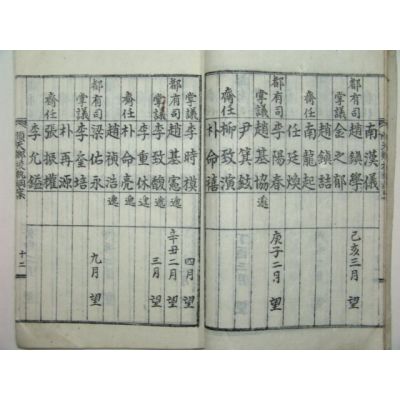 南漢儀
都有司 趙鎭學 己亥三月 望
掌議 金之郁
趙鎭喆
齋任 南龍起
任廷煥
都有司 李陽春 庚子二月 望
掌議 趙基協
尹箕鉉
齋任 柳致演
朴命禧
掌議 李時模 四月 望
都有司 趙基憲 遞 辛丑二月 望
掌議 李致馥 遞 三月 望
李重休 遞
齋任 朴命亮 遞
趙禎浩 遞
都有司 梁佑永 九月 望
掌議 李奎培
朴再源
齋任 張振權
李允鎰
十二